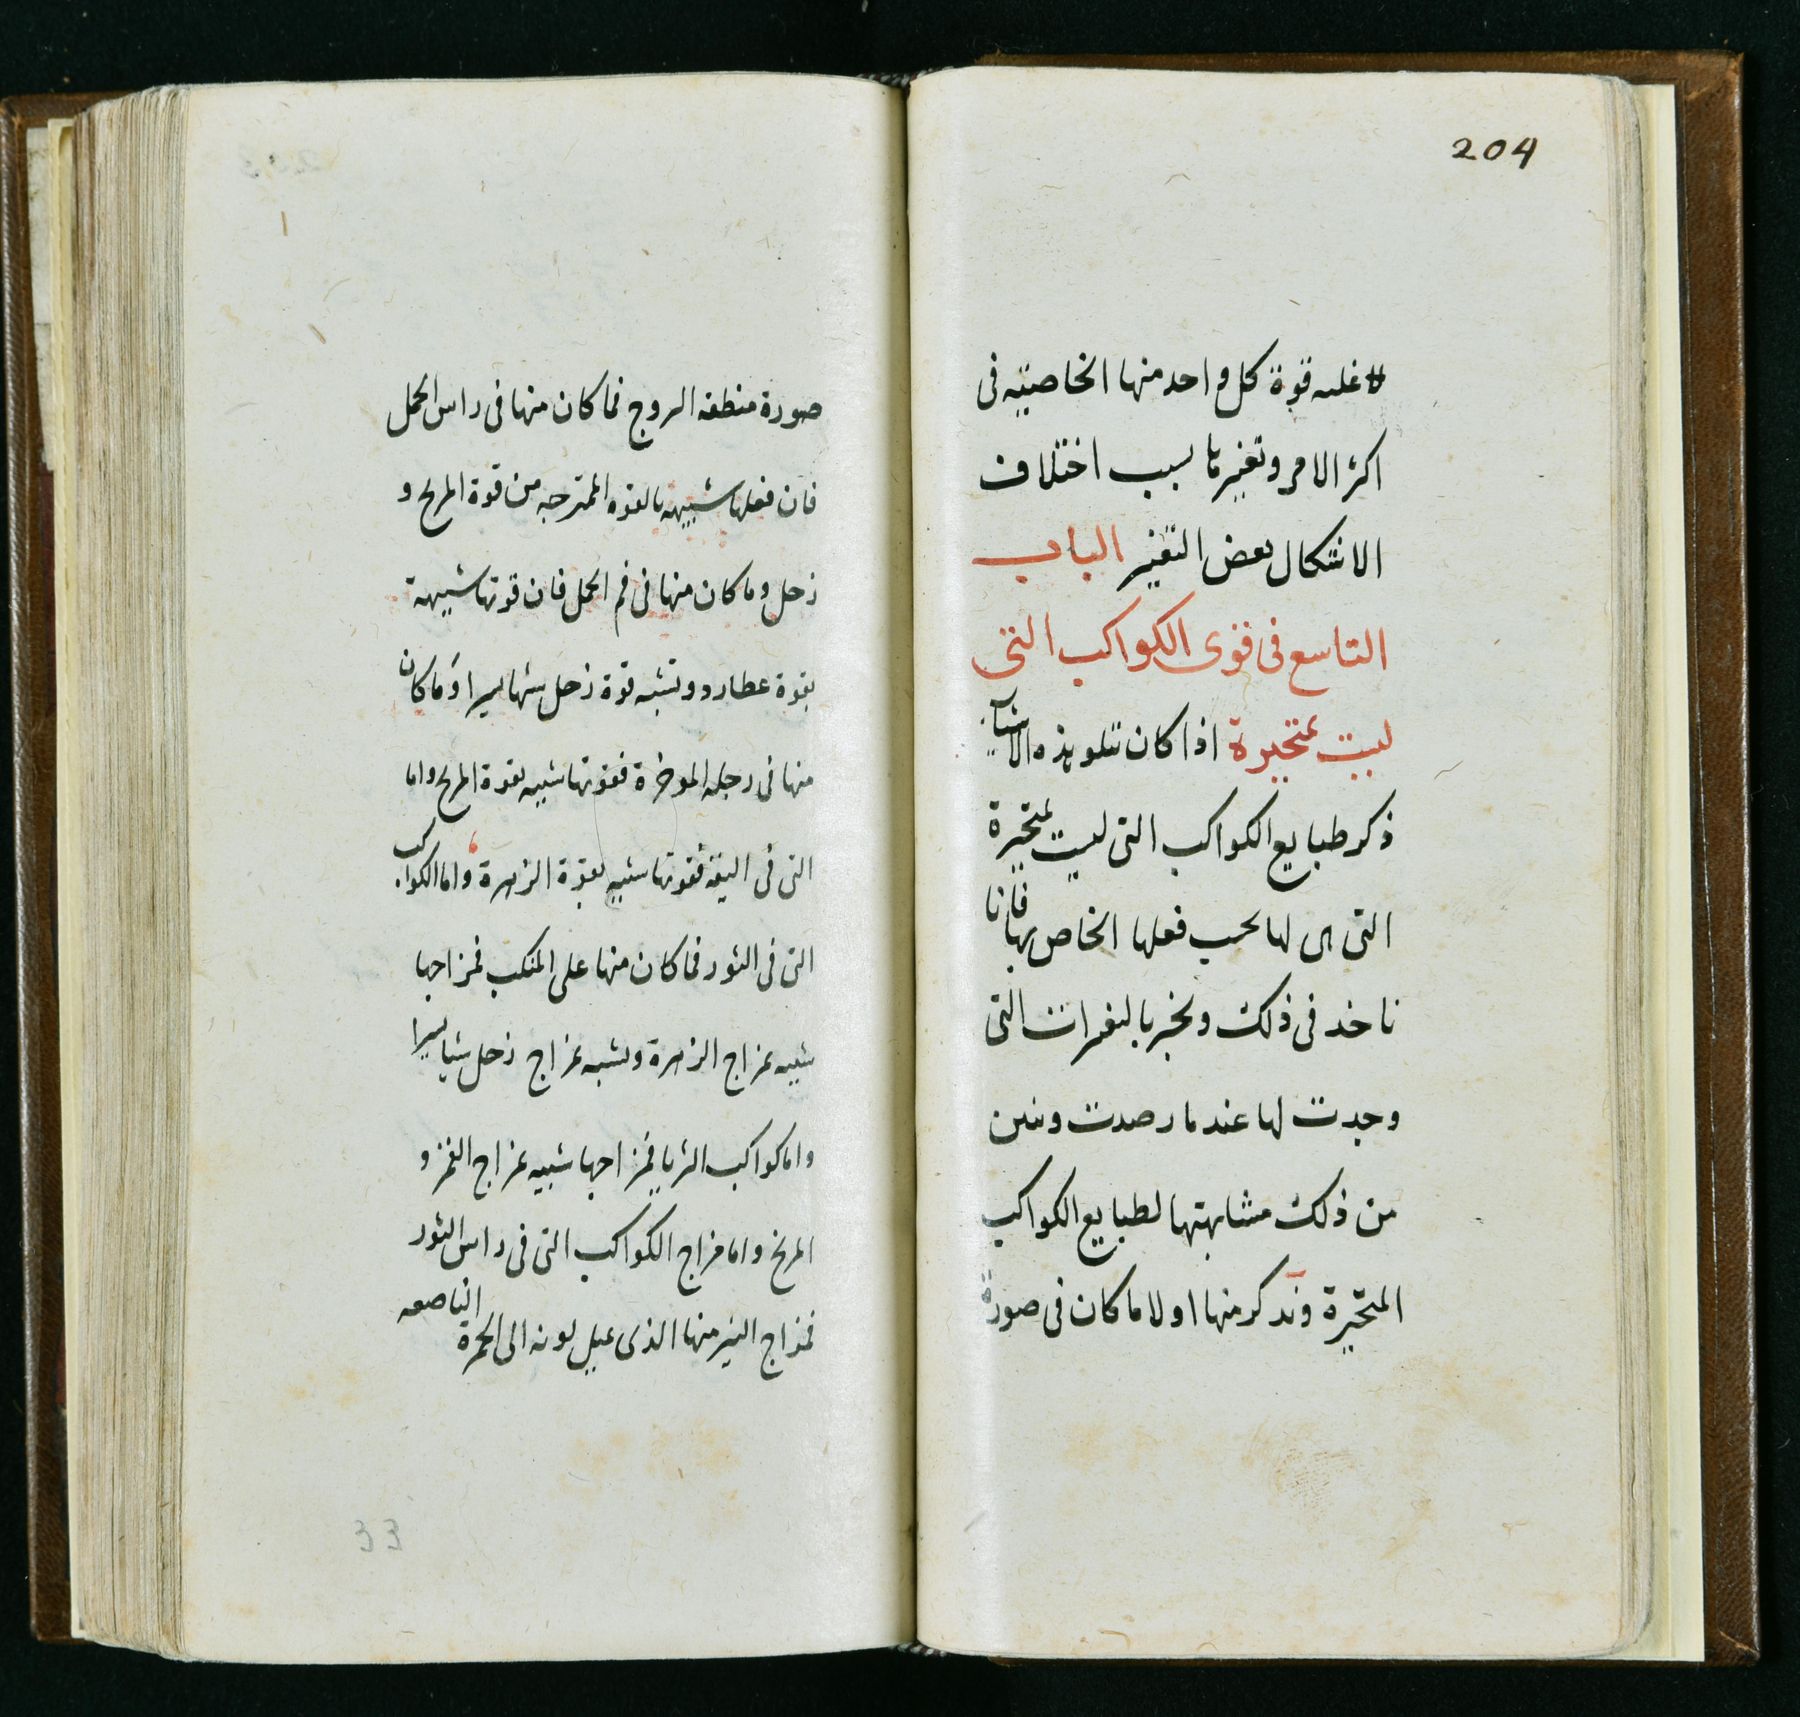 204
غلبه قوة كل واحد منها الخاصيته فى
اكثر الامر وتغيرها بسبب اختلاف
الاشكال بعض التغير الباب
التاسع فى قوى الكواكب التى
ليست بمتحيرة اذا كان تتلو هذه الاشياء
ذكر طبايع الكواكب التى ليست بمتحيرة
التى هى لها بحسب فعلها الخاص بها فانا
ناخد فى ذلك ونخبر بالتغيرات التى
وجدت لها عندما رصدت ونبين
من ذلك مشابهتها لطبايع الكواكب
المتحيرة ونذكر منها اولا ما كان فى صورة
صورة منطقه البروج فما كان منها فى راس الحمل
فان فعلها شبيهه بالقوه الممتزجه من قوة المريخ و
زحل وما كان منها فى فم الحمل فان قوتها شبيهة
بقوة عطارد وتشبه قوة زحل شيئا يسيرا وما كان
منها فى رجله الموخرة فقوتها شبيه بقوة المريخ واما
التى فى اليته فقوتها شبيه بقوة الزهرة واما الكواكب
التى فى الثور فما كان منها على المنكب فمزاجها
شبيه بمزاج الزهرة وتشبه بمزاج زحل شيئا يسيرا
واما كواكب الثريا فمزاجها شبيه بمزاج القمر و
المريخ واما مزاج الكواكب التى فى راس الثور
فمزاج النير منها الذى يميل لونه الى الحمرة الناصعه
33